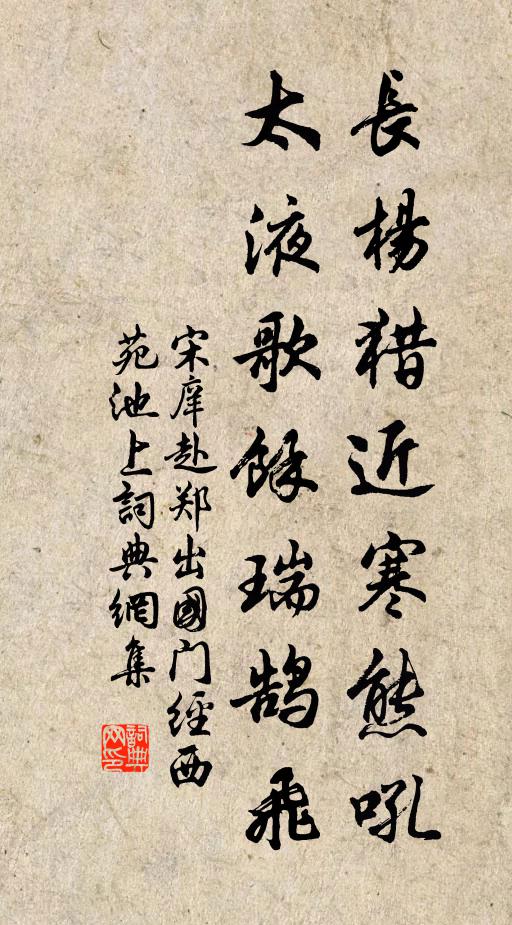 長楊猎近寒熊吼
太液歌餘瑞鹄飛
宋庠赴郑出國门經西
苑池上詞典網集
詞典网印